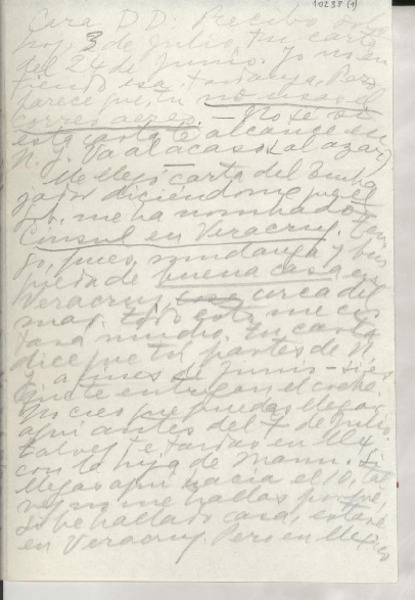 10233 (1)
Cara D.D. Recibo solo
hoy, 3 de Julio, tu carta
del 24 de Junio. Yo no en
tiendo esa tardanza. Pero
parece que tú no usas el
correo aéreo. — No sé si
esta carta te alcance en
N.Y. Va al acaso (al azar)
Me llegó carta del Emba
jador diciéndome que el
me ha nombrado
Cónsul en Veracruz. Ten
go, pues, mudanza y bús
queda de buena casa en
Veracruz, cerca del
mar. Todo esto me cos
tará mucho. Tu carta
dice que tú partes de N.
Y. a fines de Junio - si es
que te entregan el coche.
No creo que puedas llegar
aquí antes del 7 de Julio.
Talvez te tardas en
con la hija de Mann. Si
llegas aquí hacia el 10, tal
vez no me hallas porque,
si he hallado casa, estaré
en Veracruz. Pero en México